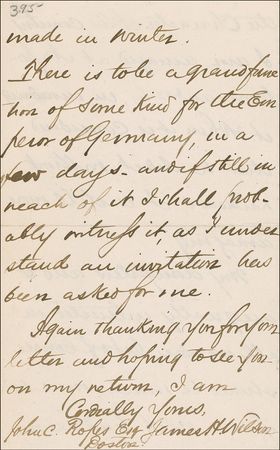 395
made in winter.
There is to be a grand func
tion of some kind for the Em
peror of Germany, in a
few days - and if still in
reach of it I shall prob-
ably witness it, as I under
stand an invitation has
been asked for me.
Again thanking you for your
letter and hoping to see you
on my return, I am
Cordially Yours,
John C. Ropes Esq James H. Wilson
Boston